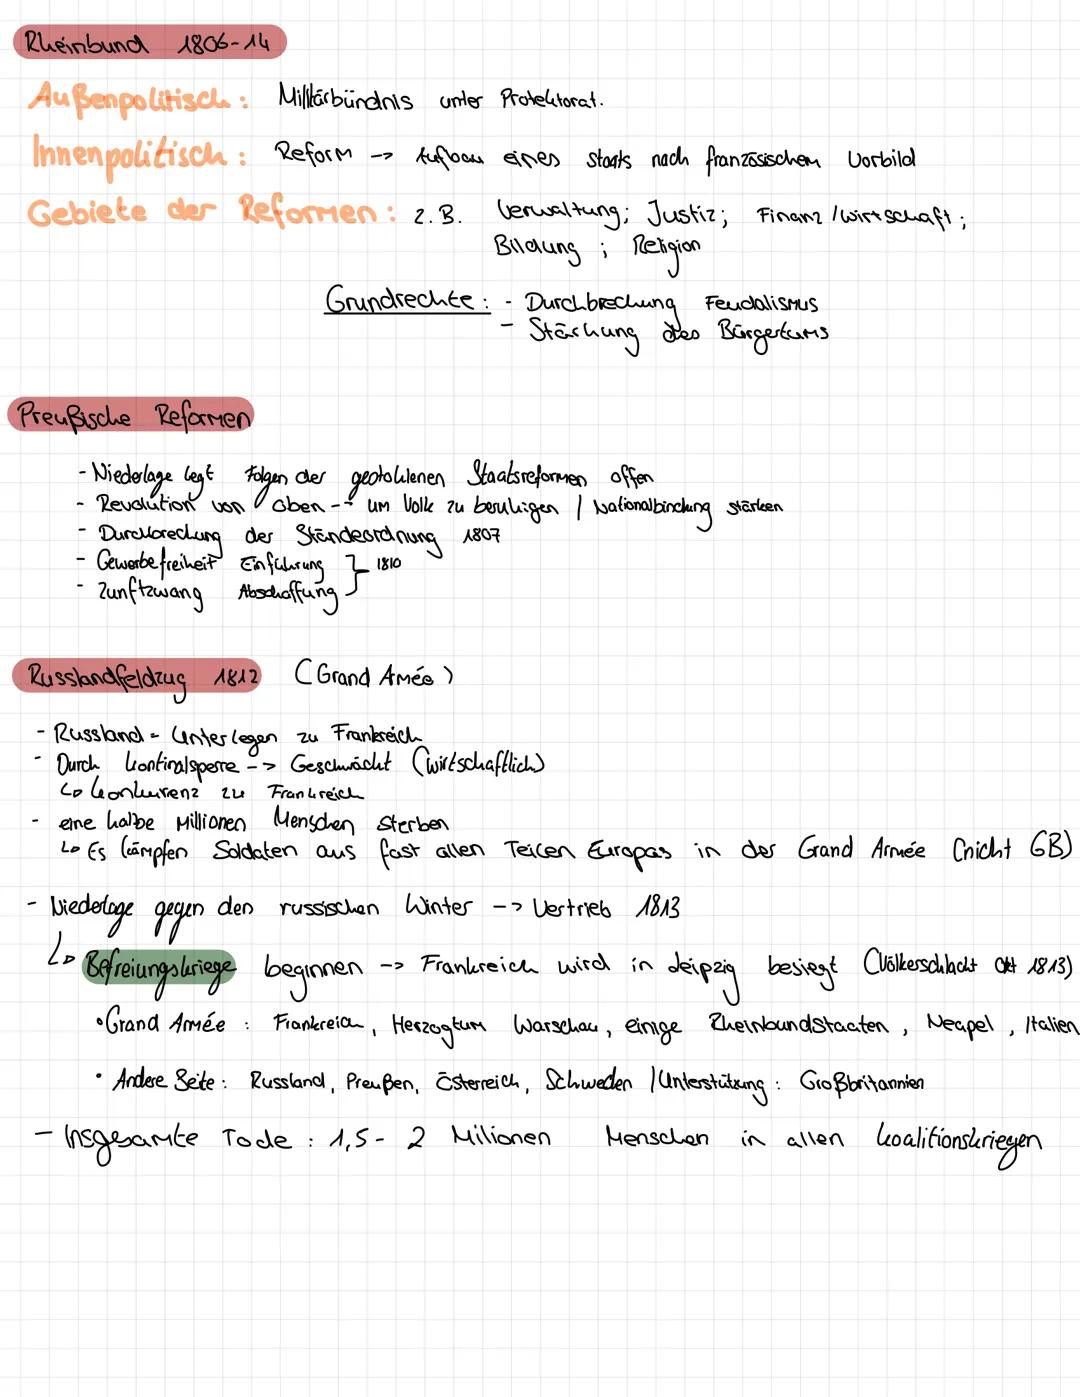 Rheinbund 1806-14
Außenpolitisch: Militärbündnis unter Protektorat.
Innenpolitisch: Reform -> Aufbau eines Staats nach französischem Vorbild
Gebiete der Reformen: z.B. Verwaltung; Justiz; Finanz/wirtschaft;
Bildung; Religion
Grundrechte: - Durchbrechung Feudalismus
- Stärkung des Bürgertums
Preußische Reformen
- Niederlage legt Folgen der Staatsreformen offen
- Revolution von oben --> um Volk zu beruhigen / Nationalbindung stärken
- Durchbrechung der Ständeordnung 1807
- Gewerbefreiheit Einführung } 1810
- Zunftzwang Abschaffung
Russlandfeldzug 1812 (Grand Amée)
- Russland = Unterlegen zu Frankreich
- Durch Kontinalsperre --> Geschwächt (wirtschaftlich)
↳ Konkurenz zu Frankreich
- eine halbe Millionen Menschen sterben
↳ Es kämpfen Soldaten aus fast allen Teilen Europas in der Grand Armée (nicht GB)
- Niederlage gegen den russischen Winter --> Vertrieb 1813
↳ Befreiungskriege beginnen --> Frankreich wird in Leipzig besiegt (Völkerschlacht Okt 1813)
• Grand Armée: Frankreich, Herzogtum Warschau, einige Rheinbundstaaten, Neapel, Italien
• Andere Seite: Russland, Preußen, Österreich, Schweden / Unterstützung: Großbritannien
- Insgesamte Tode: 1,5-2 Milionen Menschen in allen Koalitionskriegen